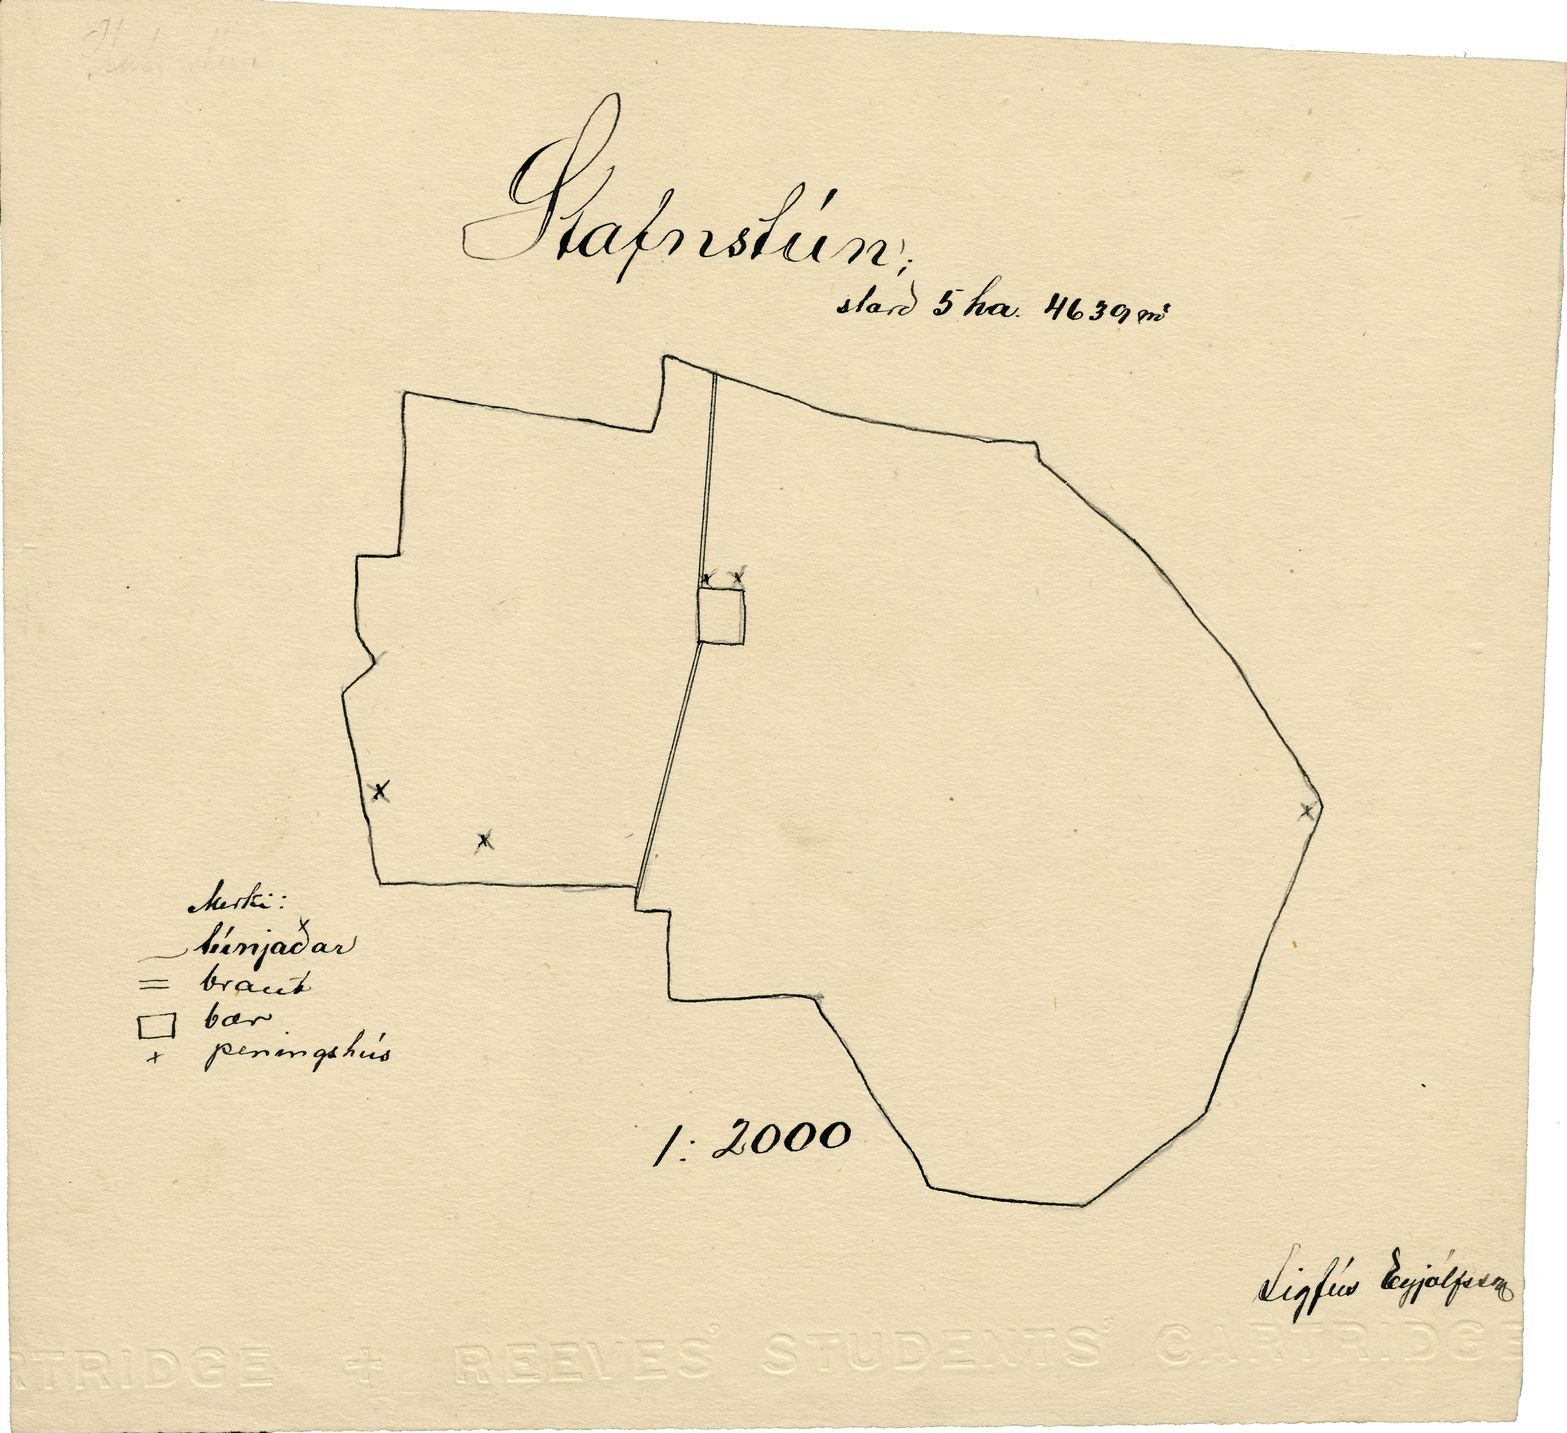 Stafnstún;
starð 5 ha. 4639 m²
Merki:
túnjaðar
= braut
bær
× peningshús
1:2000
Sigfús Eyjólfsson
RTRIDGE + REEVES' STUDENTS' CARTRIDGE